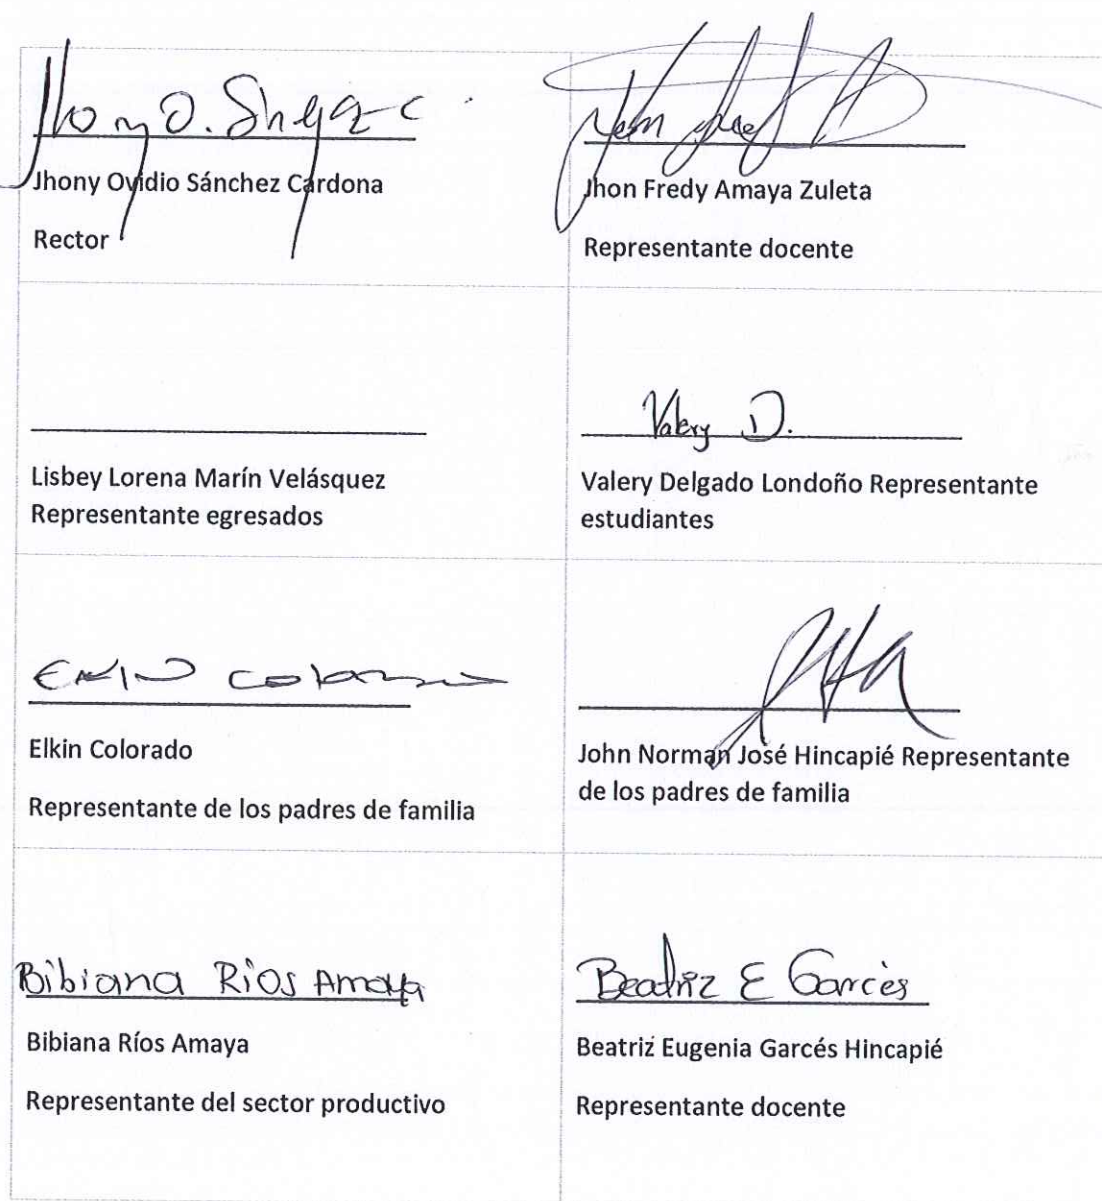 Jhony Ovidio Sánchez Cardona
Rector
Jhon Fredy Amaya Zuleta
Representante docente
Lisbey Lorena Marín Velásquez
Representante egresados
Valery D.
Valery Delgado Londoño Representante
estudiantes
Elkin Colorado
Elkin Colorado
Representante de los padres de familia
John Norman José Hincapié Representante
de los padres de familia
Bibiana Ríos Amaya
Bibiana Ríos Amaya
Representante del sector productivo
Beatriz E Garcès
Beatriz Eugenia Garcés Hincapié
Representante docente